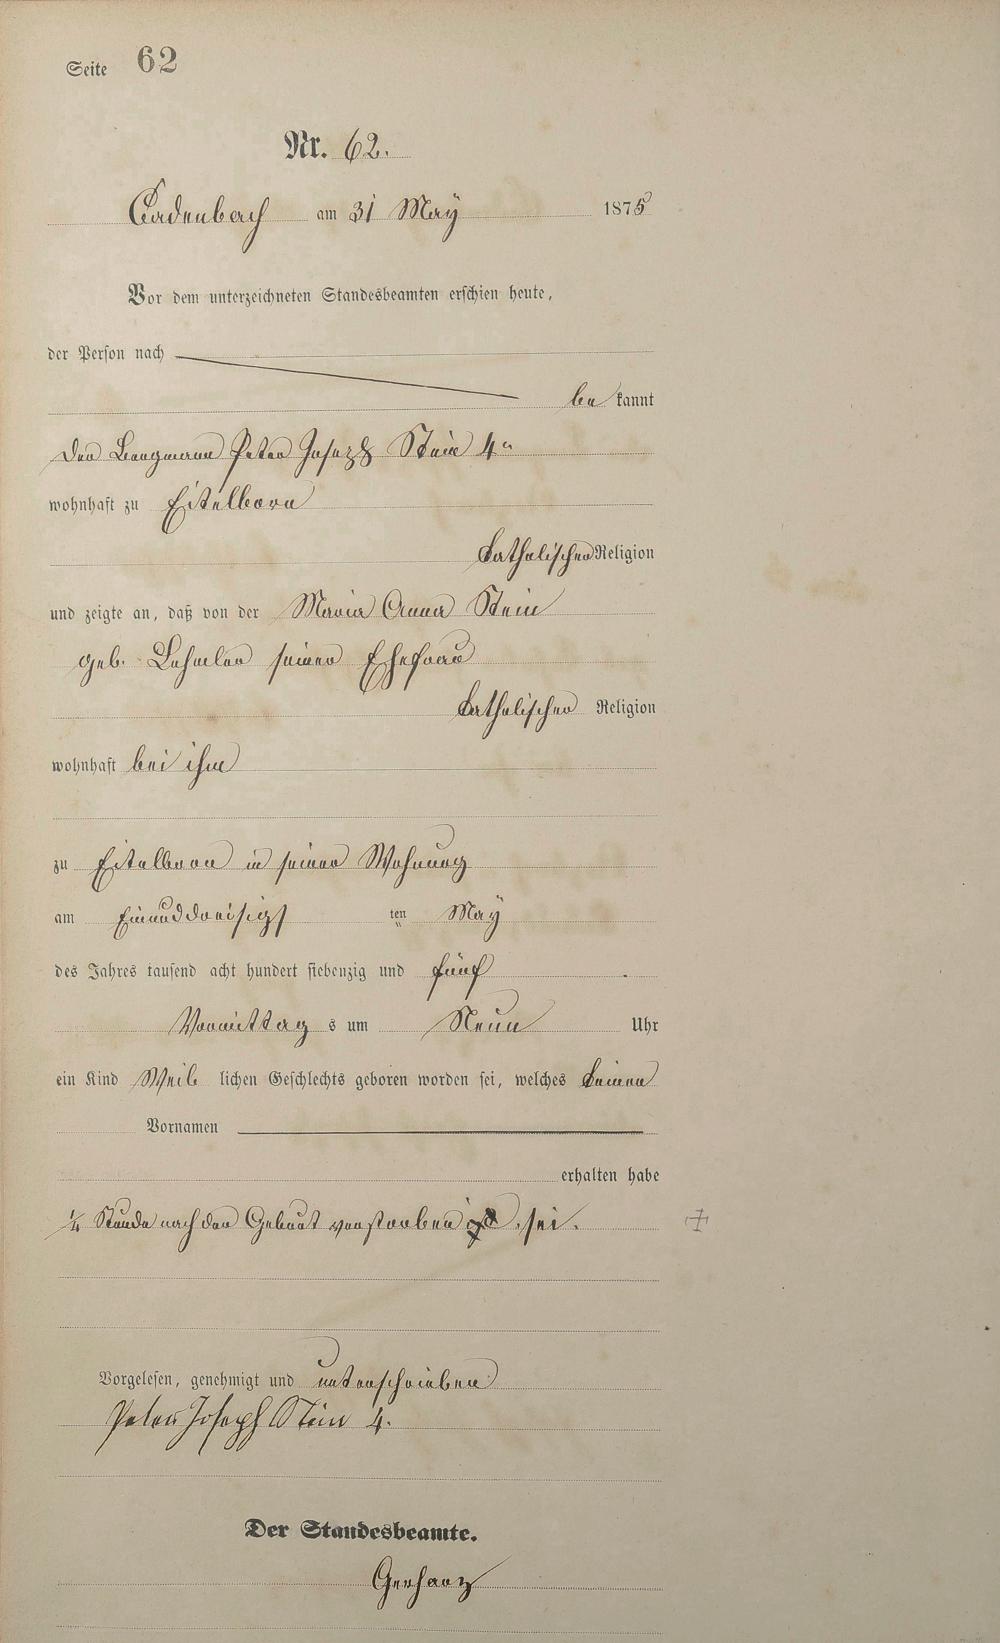 Seite 62
Nr. 62.
Cadenbach am 31 May 1875
Vor dem unterzeichneten Standesbeamten erschien heute,
der Person nach
be kannt
Der Bergmann Peter Joseph Stein 4r
wohnhaft zu Eitelborn
katholischer Religion
und zeigte an, daß von der Maria Anna Stein
geb. Lehmler seiner Ehefrau
katholischer Religion
wohnhaft bei ihm
zu Eitelborn in seiner Wohnung
am Einunddreisigs ten May
des Jahres tausend acht hundert siebenzig und fünf
Vormittag s um Neun Uhr
ein Kind Weib lichen Geschlechts geboren worden sei, welches keinen
Vornamen
erhalten habe
1/4 Stunde nach der Geburt verstorben sei.
Vorgelesen, genehmigt und unterschrieben
Peter Joseph Stein 4.
Der Standesbeamte.
Gerharz